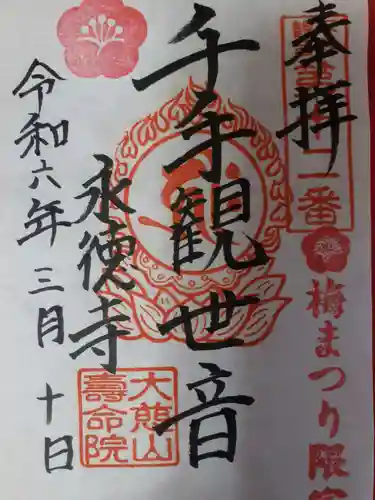 奉拝
梅まつり限定
千手観世音
永徳寺
大熊山
壽命院
令和六年三月十日